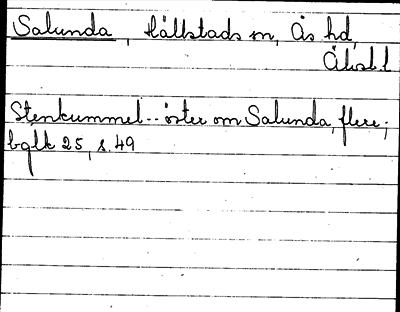 Salunda, Hällstads sn, Ås hd,
Älvsb.l
Stenkummel.. öster om Salunda, flere;
bglk 25, s. 49